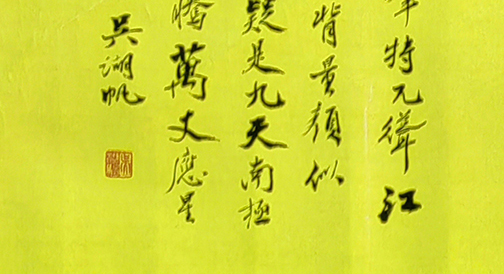 特兀聳江
背景頗似
疑是九天南極
騰萬丈應星
吳湖帆